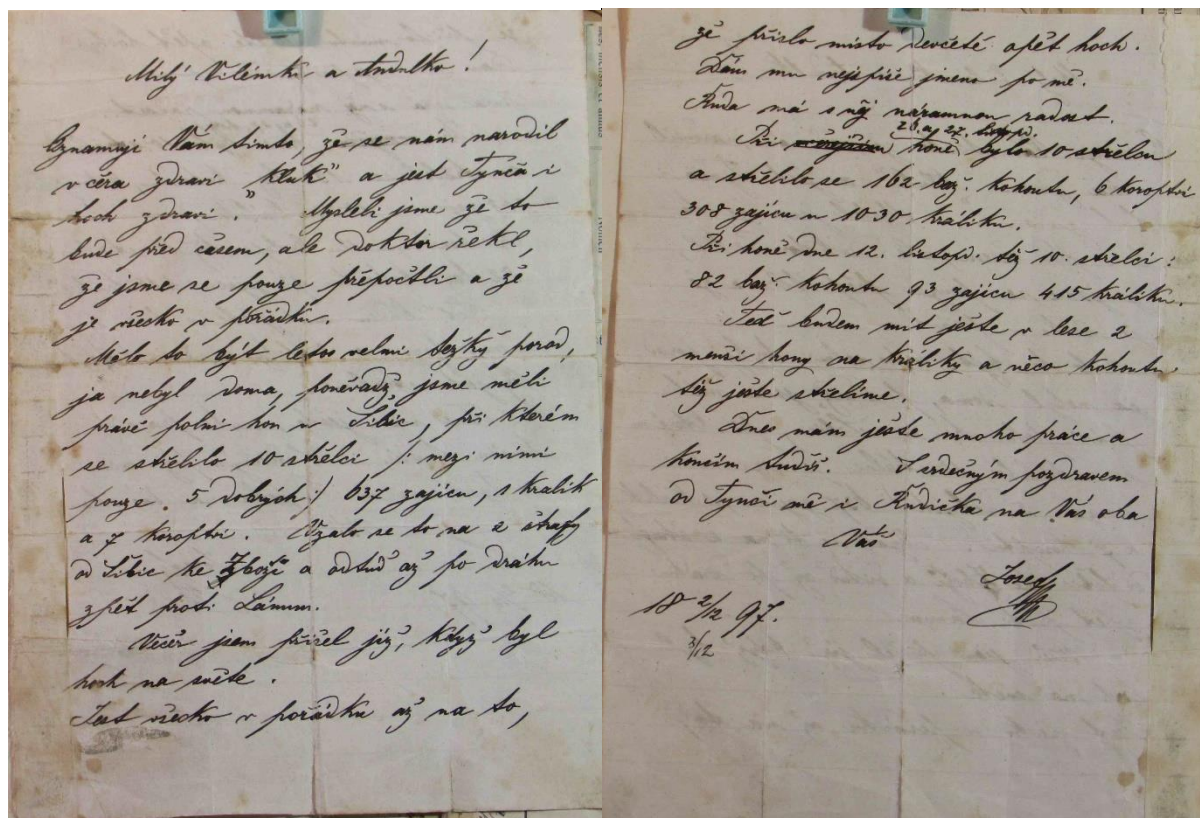 Milý Vilémku a Andulko!
Oznamuji Vám timto, že se nám narodil
včera zdravi "kluk" a jest Tynča i
hoch zdravi. Mysleli jsme že to
bude před časem, ale doktor řekl,
že jsme se pouze přepočtli a že
je všecko v pořádku.
Mělo to být letos velmi težký porod,
ja nebyl doma, poněvadž jsme měli
právě polni hon u Sibic, při kterém
se střililo 10 střelci /: mezi nimi
pouze 5 dobrých :/ 637 zajicu, 1 kralik
a 7 koroptvi. Vzalo se to na 2 štrapy
od Sibic ke Zboži a odtud až po dráhu
zpět proti Lánum.
Večer jsem přišel již, když byl
hoch na světe.
Jest všecko v pořádku až na to,
že přislo misto děvčete opět hoch.
Dám mu nejspiše jmeno po mě.
Ruda má s něj náramnou radost.
26. a 27. listopd.
Při honě bylo 10 střelcu
a střelilo se 162 baž. kohoutu, 6 koroptvi
308 zajicu u 1030 králiku.
Při honě dne 12. listopd. též 10. střelci:
82 baž. kohoutu 93 zajicu 415 králiku.
Teď budem mit ješte v lese 2
menši hony na kraliky a něco kohoutu
též ješte střelime.
Dnes mám ješte mnoho práce a
končim tudiž. S srdečným pozdravem
od Tynči mě i Rudička na Vás oba
Váš
Josef
18 2/12 97.
3/12